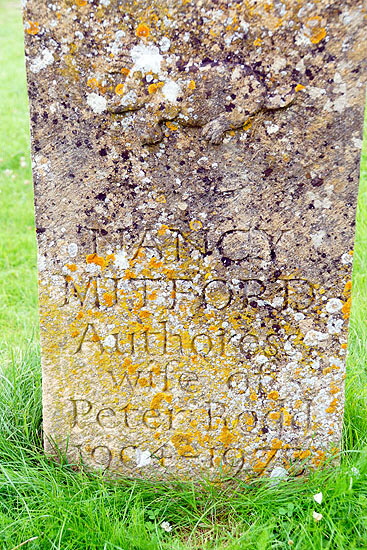 NANCY
MITFORD
Authoress
wife of
Peter Rodd
1904-1973